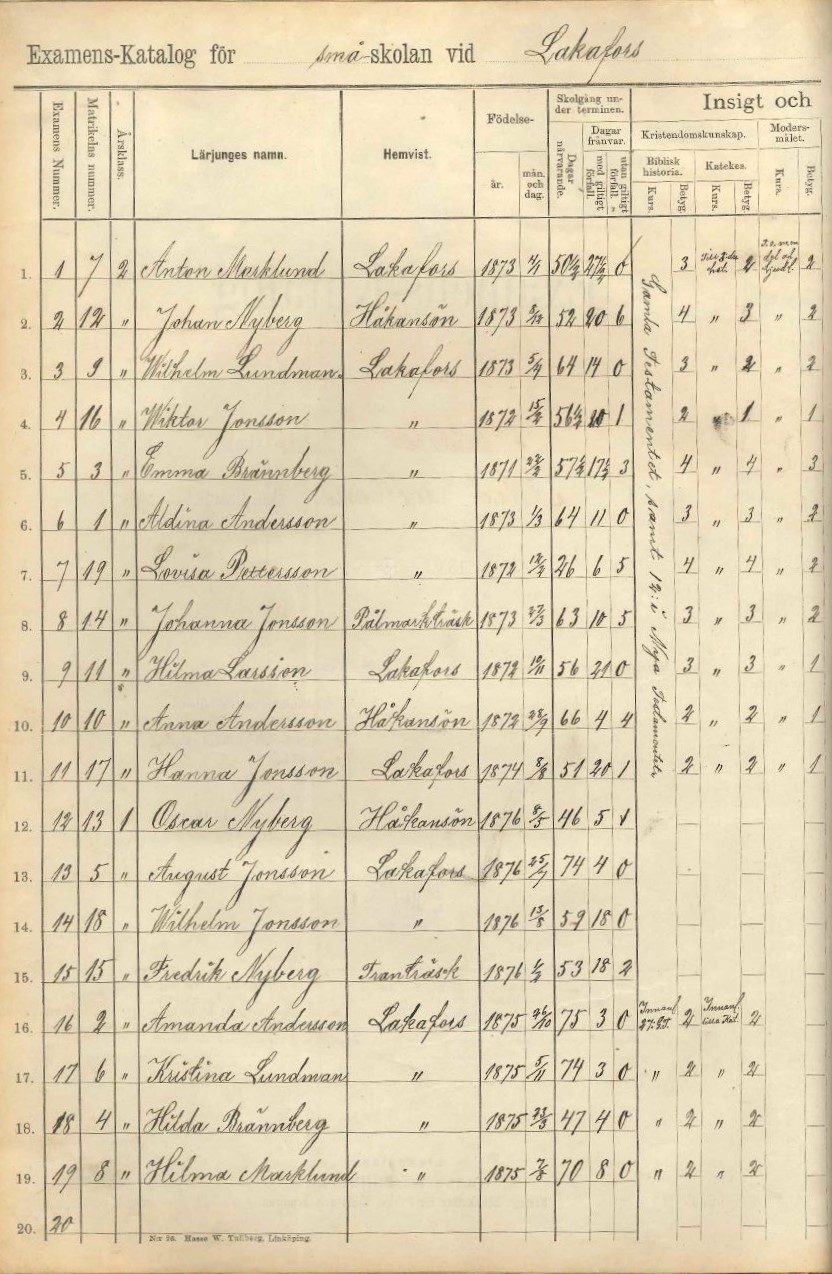 Examens-Katalog för små-skolan vid Lakafors
Insigt och
Examens Nummer. Matrikelns nummer. Årsklass. Lärjunges namn. Hemvist. Födelse- år. mån. och dag. Skolgång under terminen. Dagar närvarande. Dagar frånvar. med giltigt förfall. utan giltigt förfall. Kristendomskunskap. Biblisk historia. Kurs. Betyg. Katekes. Kurs. Betyg. Modersmålet. Kurs. Betyg.
1. 1 7 2 Anton Marklund Lakafors 1873 50½ 27½ 0 3 2 2
2. 2 12 " Johan Nyberg Håkansön 1873 52 20 6 4 " 3 " 2
3. 3 9 " Wilhelm Lundman Lakafors 1873 5/7 64 14 0 3 " 2 " 2
4. 4 16 " Wiktor Jonsson " 1872 15/2 56½ 10 1 2 " 1 " 1
5. 5 3 " Emma Brännberg " 1871 57½ 17½ 3 4 " 4 " 3
6. 6 1 " Aldina Andersson " 1873 1/3 64 11 0 3 " 3 " 2
7. 7 19 " Lovisa Pettersson " 1872 26 6 5 4 " 4 " 2
8. 8 14 " Johanna Jonsson Pålmarkträsk 1873 27/3 63 10 5 3 " 3 " 2
9. 9 11 " Hilma Larsson Lakafors 1872 56 21 0 3 " 3 " 1
10. 10 10 " Anna Andersson Håkansön 1872 28/9 66 4 4 2 " 2 " 1
11. 11 17 " Hanna Jonsson Lakafors 1874 8/8 51 20 1 2 " 2 " 1
Gamla Testamentet, samt 12: i Nya Testamentet
12. 12 13 1 Oscar Nyberg Håkansön 1876 8/5 46 5 1
13. 13 5 " August Jonsson Lakafors 1876 25/7 74 4 0
14. 14 18 " Wilhelm Jonsson " 1876 15/8 59 18 0
15. 15 15 " Fredrik Nyberg Tranträsk 1876 1/2 53 18 2
16. 16 2 " Amanda Andersson Lakafors 1875 26/10 75 3 0 2 2
17. 17 6 " Kristina Lundman " 1875 5/11 74 3 0 " 2 " 2
18. 18 4 " Hilda Brännberg " 1875 23/3 47 4 0 " 2 " 2
19. 19 8 " Hilma Marklund " 1875 7/8 70 8 0 " 2 " 2
20. 20
N:r 28. Hasse W. Tullberg, Linköping.